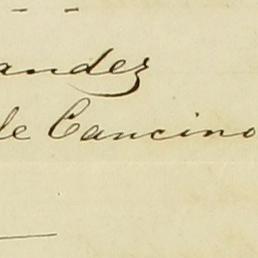 andez
le Cancino